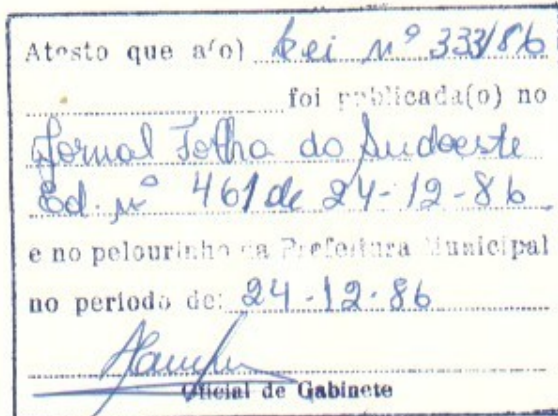 Atesto que a(o) Lei nº 333/86
foi publicada(o) no
Jornal Folha do Sudoeste
Ed. nº 461 de 24-12-86
e no pelourinho da Prefeitura Municipal
no periodo de: 24-12-86
Oficial de Gabinete